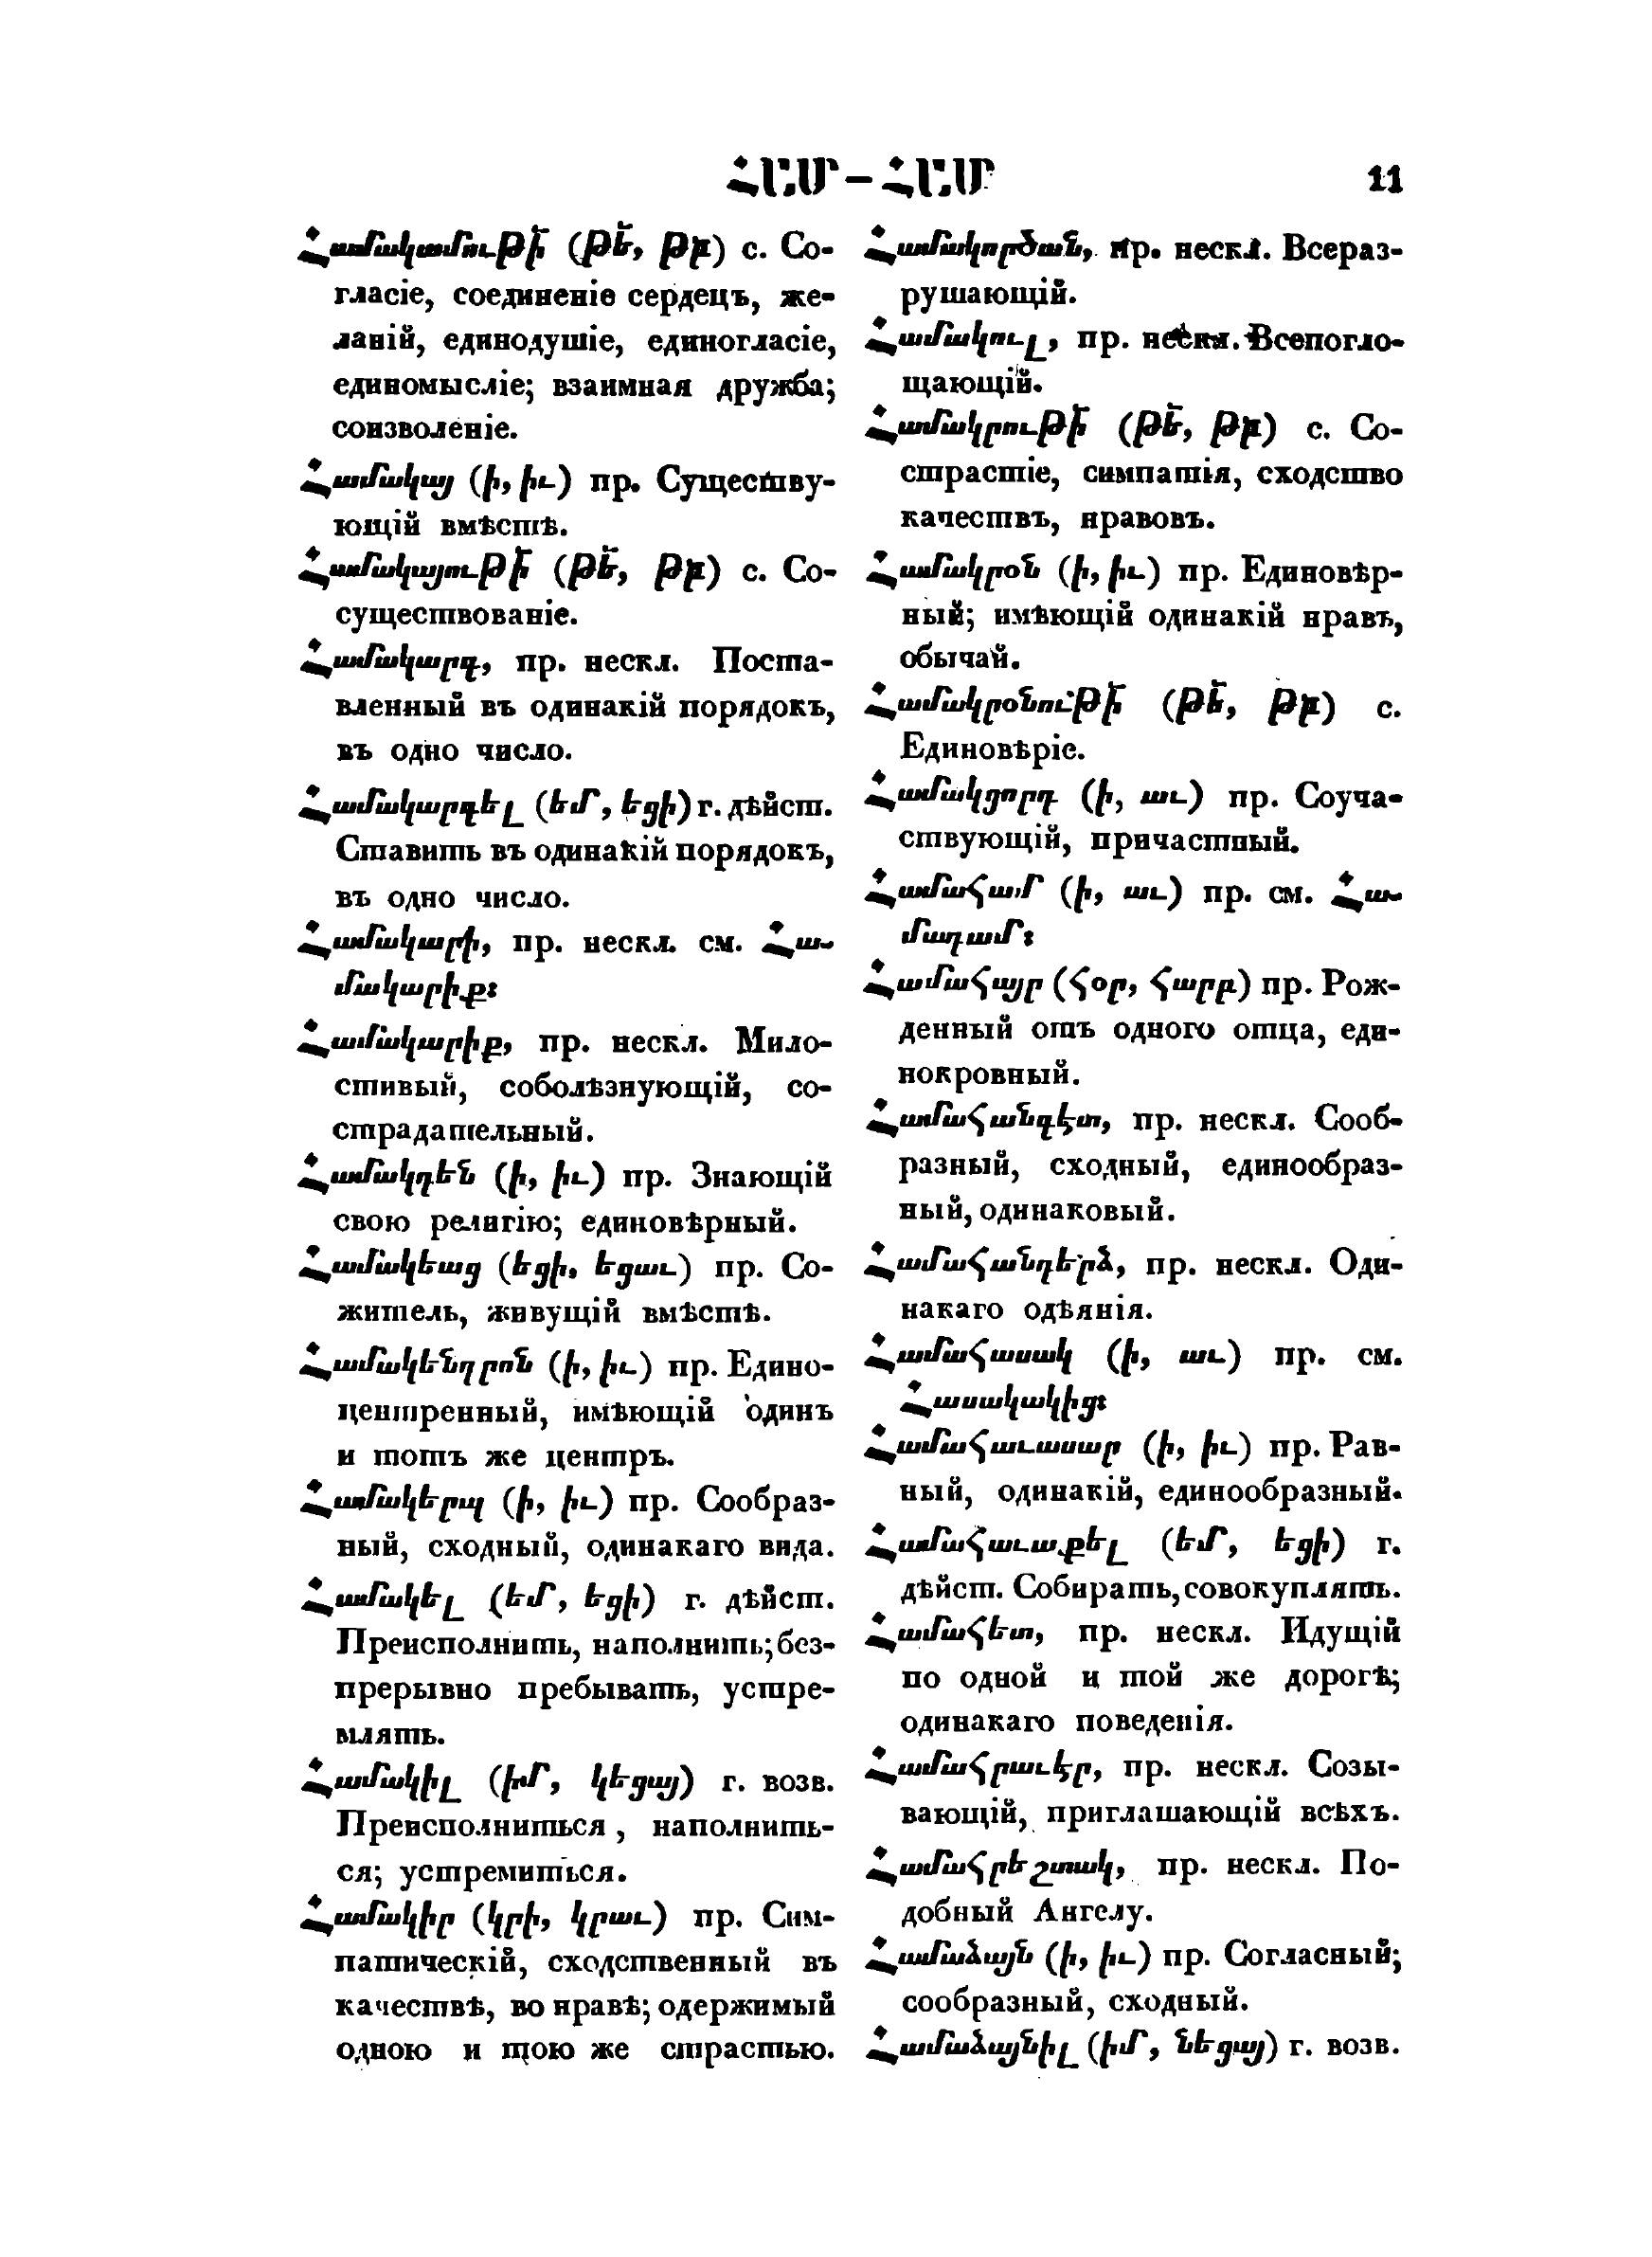 ՀԱՄ – ՀԱՄ 11
Համակամութի՟ (թե՟, թբ՟) с. Со-
гласіе, соединеніе сердецъ, же-
ланій, единодушіе, единогласіе,
единомысліе; взаимная дружба;
соизволеніе.
Համակայ (ի, իւ) пр. Существу-
ющій вмѣстѣ.
Համակայութի՟ (թե՟, թբ՟) с. Со-
существованіе.
Համակարգ, пр. нескл. Поста-
вленный въ одинакій порядокъ,
въ одно число.
Համակարգել (եմ, եցի) г. дѣйст.
Ставить въ одинакій порядокъ,
въ одно число.
Համակարի, пр. нескл. см. Հա-
մակարիք։
Համակարիք, пр. нескл. Мило-
стивый, соболѣзнующій, со-
страдательный.
Համակդեն (ի, իւ) пр. Знающій
свою религію; единовѣрный.
Համակեաց (եցի, եցաւ) пр. Со-
житель, живущій вмѣстѣ.
Համակենդրոն (ի, իւ) пр. Едино-
центренный, имѣющій одинъ
и тотъ же центръ.
Համակերպ (ի, իւ) пр. Сообраз-
ный, сходный, одинакаго вида.
Համակել (եմ, եցի) г. дѣйст.
Преисполнить, наполнить; без-
прерывно пребывать, устре-
млять.
Համակիլ (իմ, կեցայ) г. возв.
Преисполниться, наполнить-
ся; устремиться.
Համակիր (կրի, կրաւ) пр. Сим-
патическій, сходственный въ
качествѣ, во нравѣ; одержимый
одною и тою же страстью.
Համակործան, пр. нескл. Всераз-
рушающій.
Համակուլ, пр. нескл. Всепогло-
щающій.
Համակրութի՟ (թե՟, թբ՟) с. Со-
страстіе, симпатія, сходство
качествъ, нравовъ.
Համակրօն (ի, իւ) пр. Единовѣр-
ный; имѣющій одинакій нравъ,
обычай.
Համակրօնութի՟ (թե՟, թբ՟) с.
Единовѣріе.
Համակցորդ (ի, աւ) пр. Соуча-
ствующій, причастный.
Համահամ (ի, աւ) пр. см. Հա-
մադամ։
Համահայր (հօր, հարբ) пр. Рож-
денный отъ одного отца, еди-
нокровный.
Համահանգէտ, пр. нескл. Сооб-
разный, сходный, единообраз-
ный, одинаковый.
Համահանդերձ, пр. нескл. Оди-
накаго одѣянія.
Համահասակ (ի, աւ) пр. см.
Հասակակից։
Համահաւասար (ի, իւ) пр. Рав-
ный, одинакій, единообразный.
Համահաւաքել (եմ, եցի) г.
дѣйст. Собирать, совокуплять.
Համահետ, пр. нескл. Идущій
по одной и той же дорогѣ;
одинакаго поведенія.
Համահրաւէր, пр. нескл. Созы-
вающій, приглашающій всѣхъ.
Համահրեշտակ, пр. нескл. По-
добный Ангелу.
Համաձայն (ի, իւ) пр. Согласный;
сообразный, сходный.
Համաձայնիլ (իմ, նեցայ) г. возв.